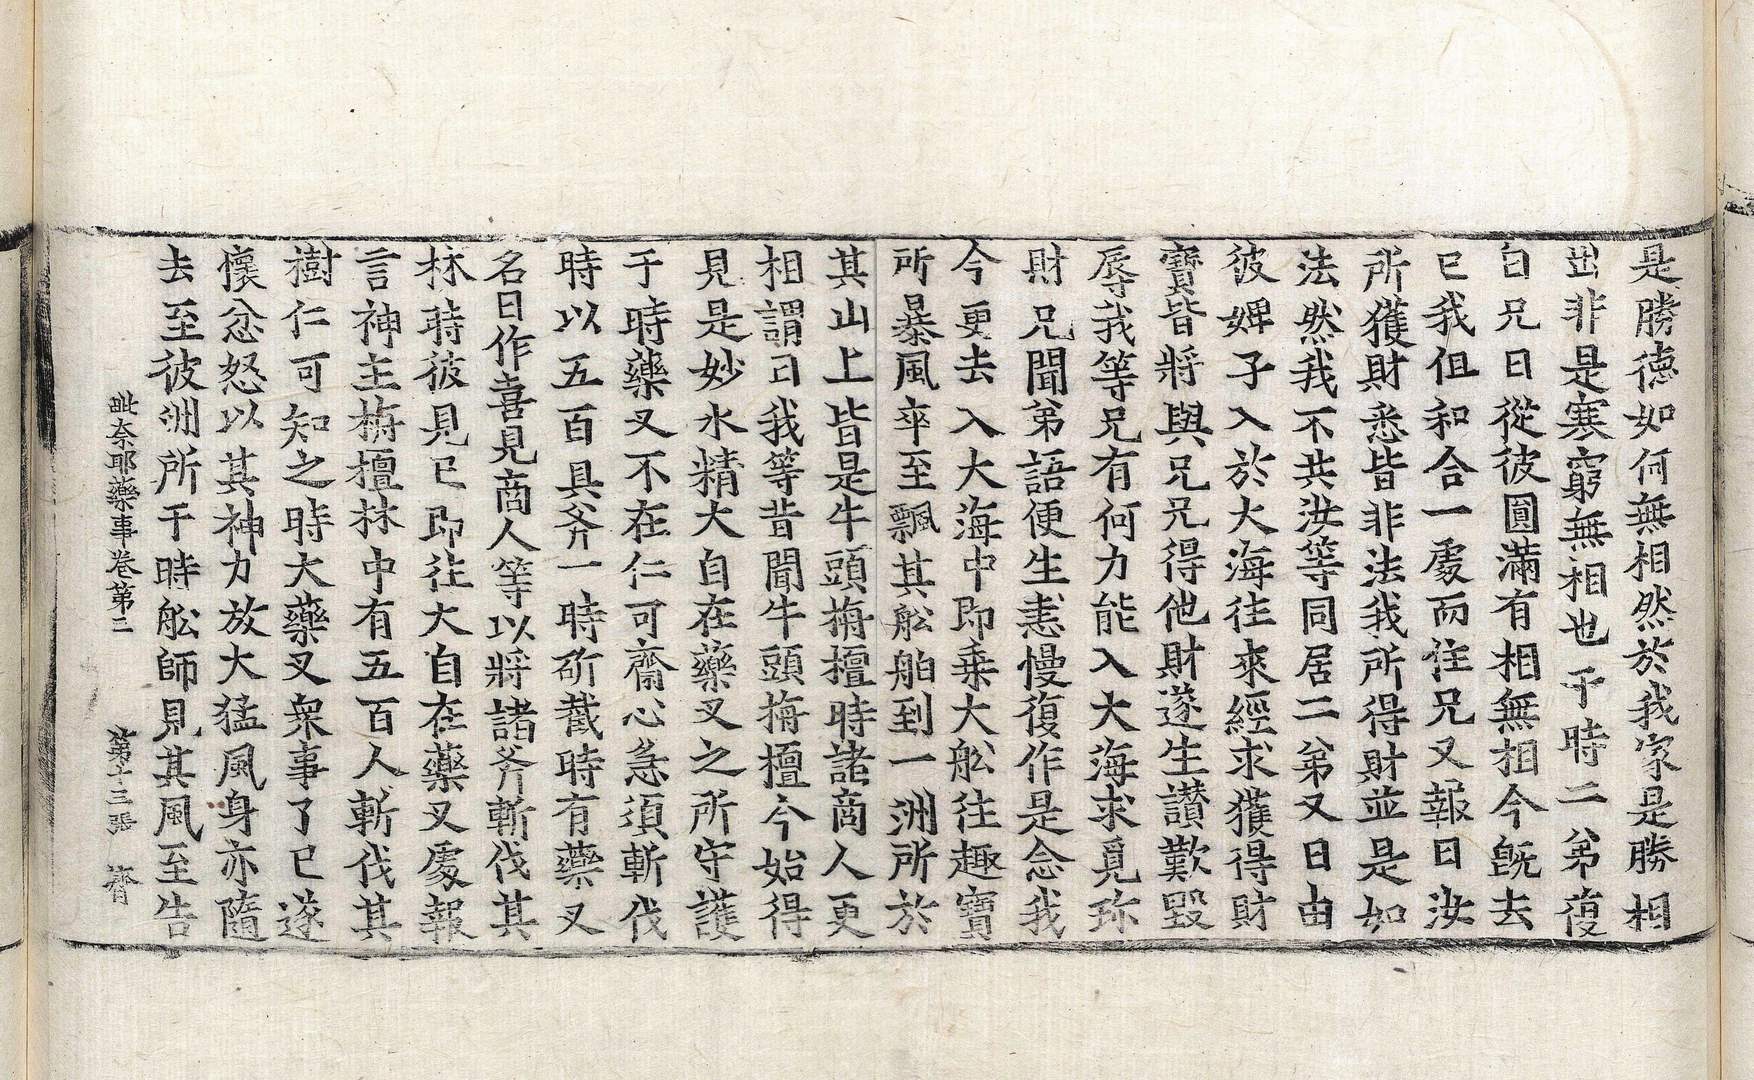 是勝德如何無相然於我家是勝相
出非是寒窮無相也于時二弟復
白兄曰從彼圓滿有相無相今既去
已我但和合一處而住兄又報曰汝
所獲財悉皆非法我所得財並是如
法然我不共汝等同居二弟又曰由
彼婢子入於大海往來經求獲得財
寶皆將與兄兄得他財遂生讃歎毀
辱我等兄有何力能入大海求覓珎
財兄聞弟語便生恚慢復作是念我
今更去入大海中即乗大舩往趣寶
所暴風卒至飄其舩舶到一洲所於
其山上皆是牛頭栴檀時諸商人更
相謂曰我等昔聞牛頭栴檀今始得
見是妙水精大自在藥叉之所守護
于時藥叉不在仁可齋心急須斬伐
時以五百具斧一時斫截時有藥叉
名曰作喜見商人等以將諸斧斬伐其
林時彼見已即往大自在藥叉處報
言神主栴檀林中有五百人斬伐其
樹仁可知之時大藥叉衆事了已遂
懷忿怒以其神力放大猛風身亦隨
去至彼洲所于時舩師見其風至告
毗奈耶藥事卷第二　第十三張　齊